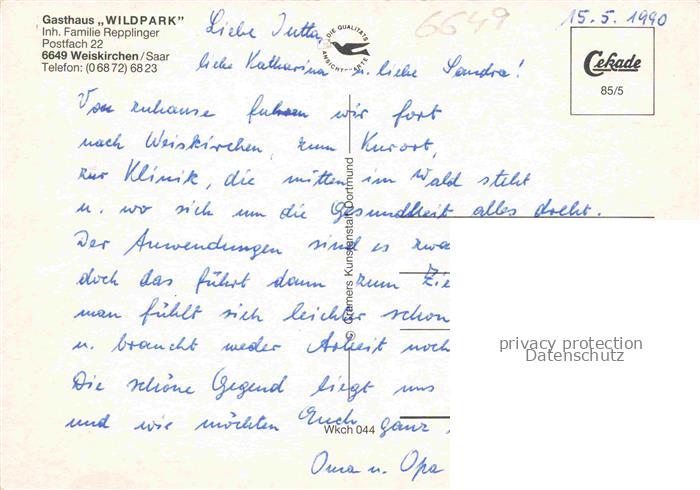 Gasthaus „WILDPARK"
Inh. Familie Repplinger
Postfach 22
6649 Weiskirchen/Saar
Telefon: (0 68 72) 68 23
6649
15.5.1990
DIE QUALITÄTS ANSICHTSKARTE
Cekade
85/5
Liebe Jutta,
liebe Katharina u. liebe Sandra!
Von zuhause fuhren wir fort
nach Weiskirchen, zum Kurort,
zur Klinik, die mitten im Wald steht
u. wo sich um die Gesundheit alles dreht.
Der Anwendungen sind es zwa
doch das führt dann zum Zie
man fühlt sich leichter schon
u. braucht weder Arbeit noch
Die schöne Gegend liegt uns
und wir möchten Euch ganz
Oma u. Opa
© Cramers Kunstanstalt Dortmund
Wkch 044
privacy protection
Datenschutz